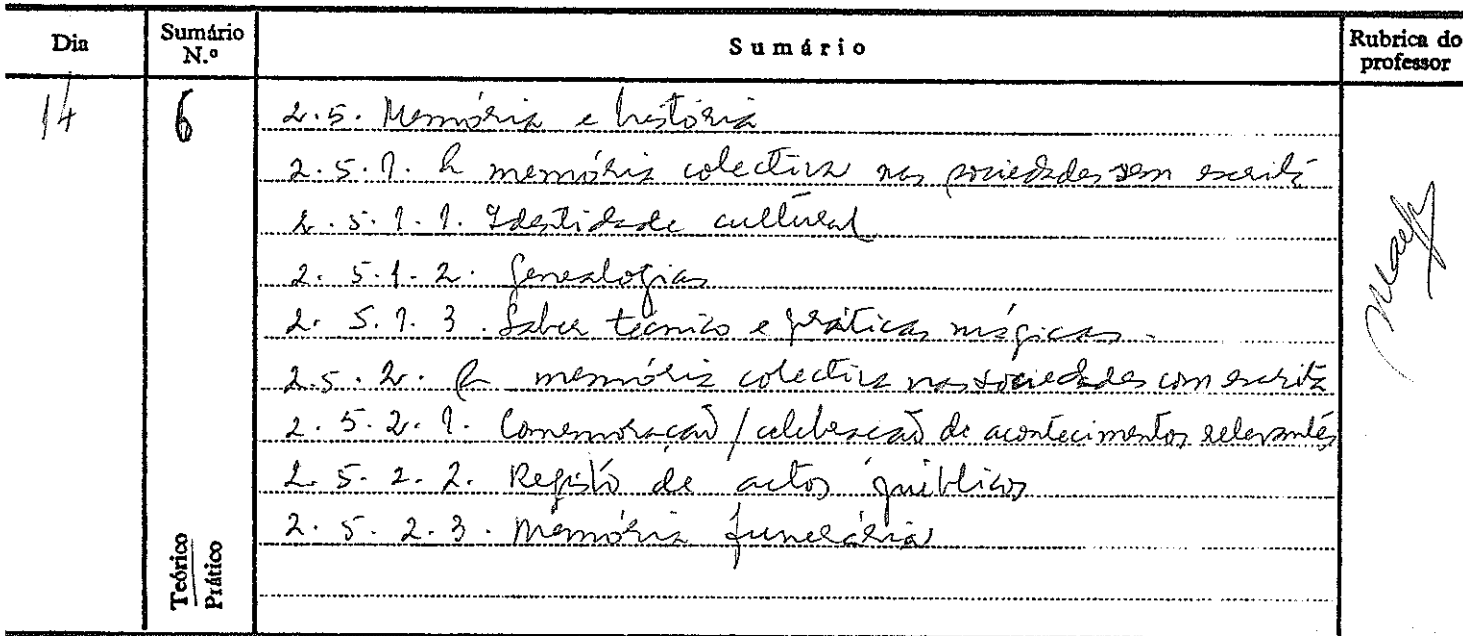 Dia Sumário N.º Sumário Rubrica do professor
14 6 2.5. Memória e história
2.5.1. A memória colectiva nas sociedades sem escrita
2.5.1.1. Identidade cultural
2.5.1.2. Genealogias
2.5.1.3. Saber técnico e práticas mágicas.
2.5.2. A memória colectiva nas sociedades com escrita
2.5.2.1. Comemoração / celebração de acontecimentos relevantes
2.5.2.2. Registo de actos públicos
2.5.2.3. Memória funerária
Teórico
Prático